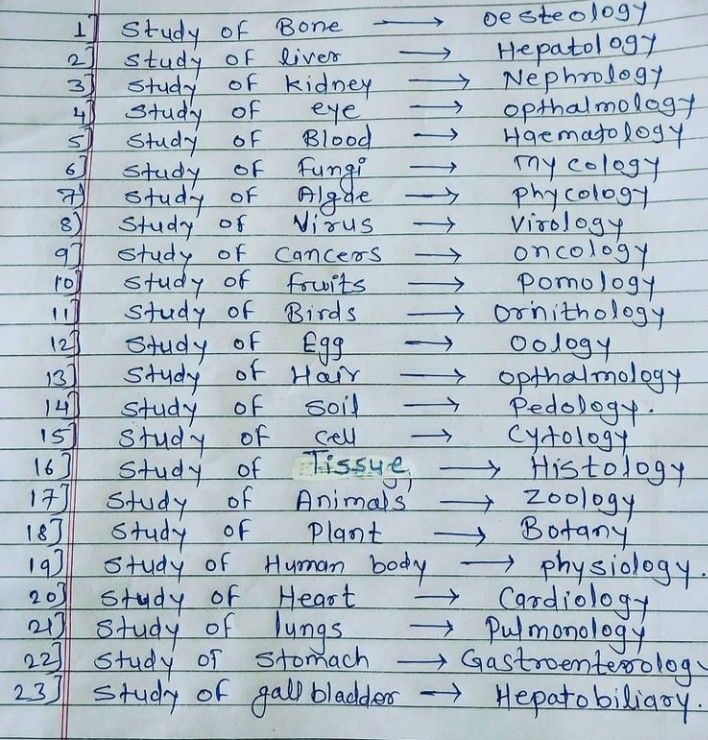 1] Study of Bone → Oesteology
2] Study of liver → Hepatology
3] Study of kidney → Nephrology
4] Study of eye → Opthalmology
5] Study of Blood → Haematology
6] Study of Fungi → Mycology
7] Study of Algae → Phycology
8) Study of Virus → Virology
9] Study of Cancers → Oncology
10] Study of fruits → Pomology
11] Study of Birds → Ornithology
12] Study of Egg → Oology
13] Study of Hair → Opthalmology
14] Study of Soil → Pedology.
15] Study of Cell → Cytology
16] Study of Tissue → Histology
17] Study of Animals → Zoology
18] Study of Plant → Botany
19] Study of Human body → physiology.
20] Study of Heart → Cardiology
21] Study of lungs → Pulmonology
22] Study of Stomach → Gastroenterology
23] Study of gall bladder → Hepatobiliary.